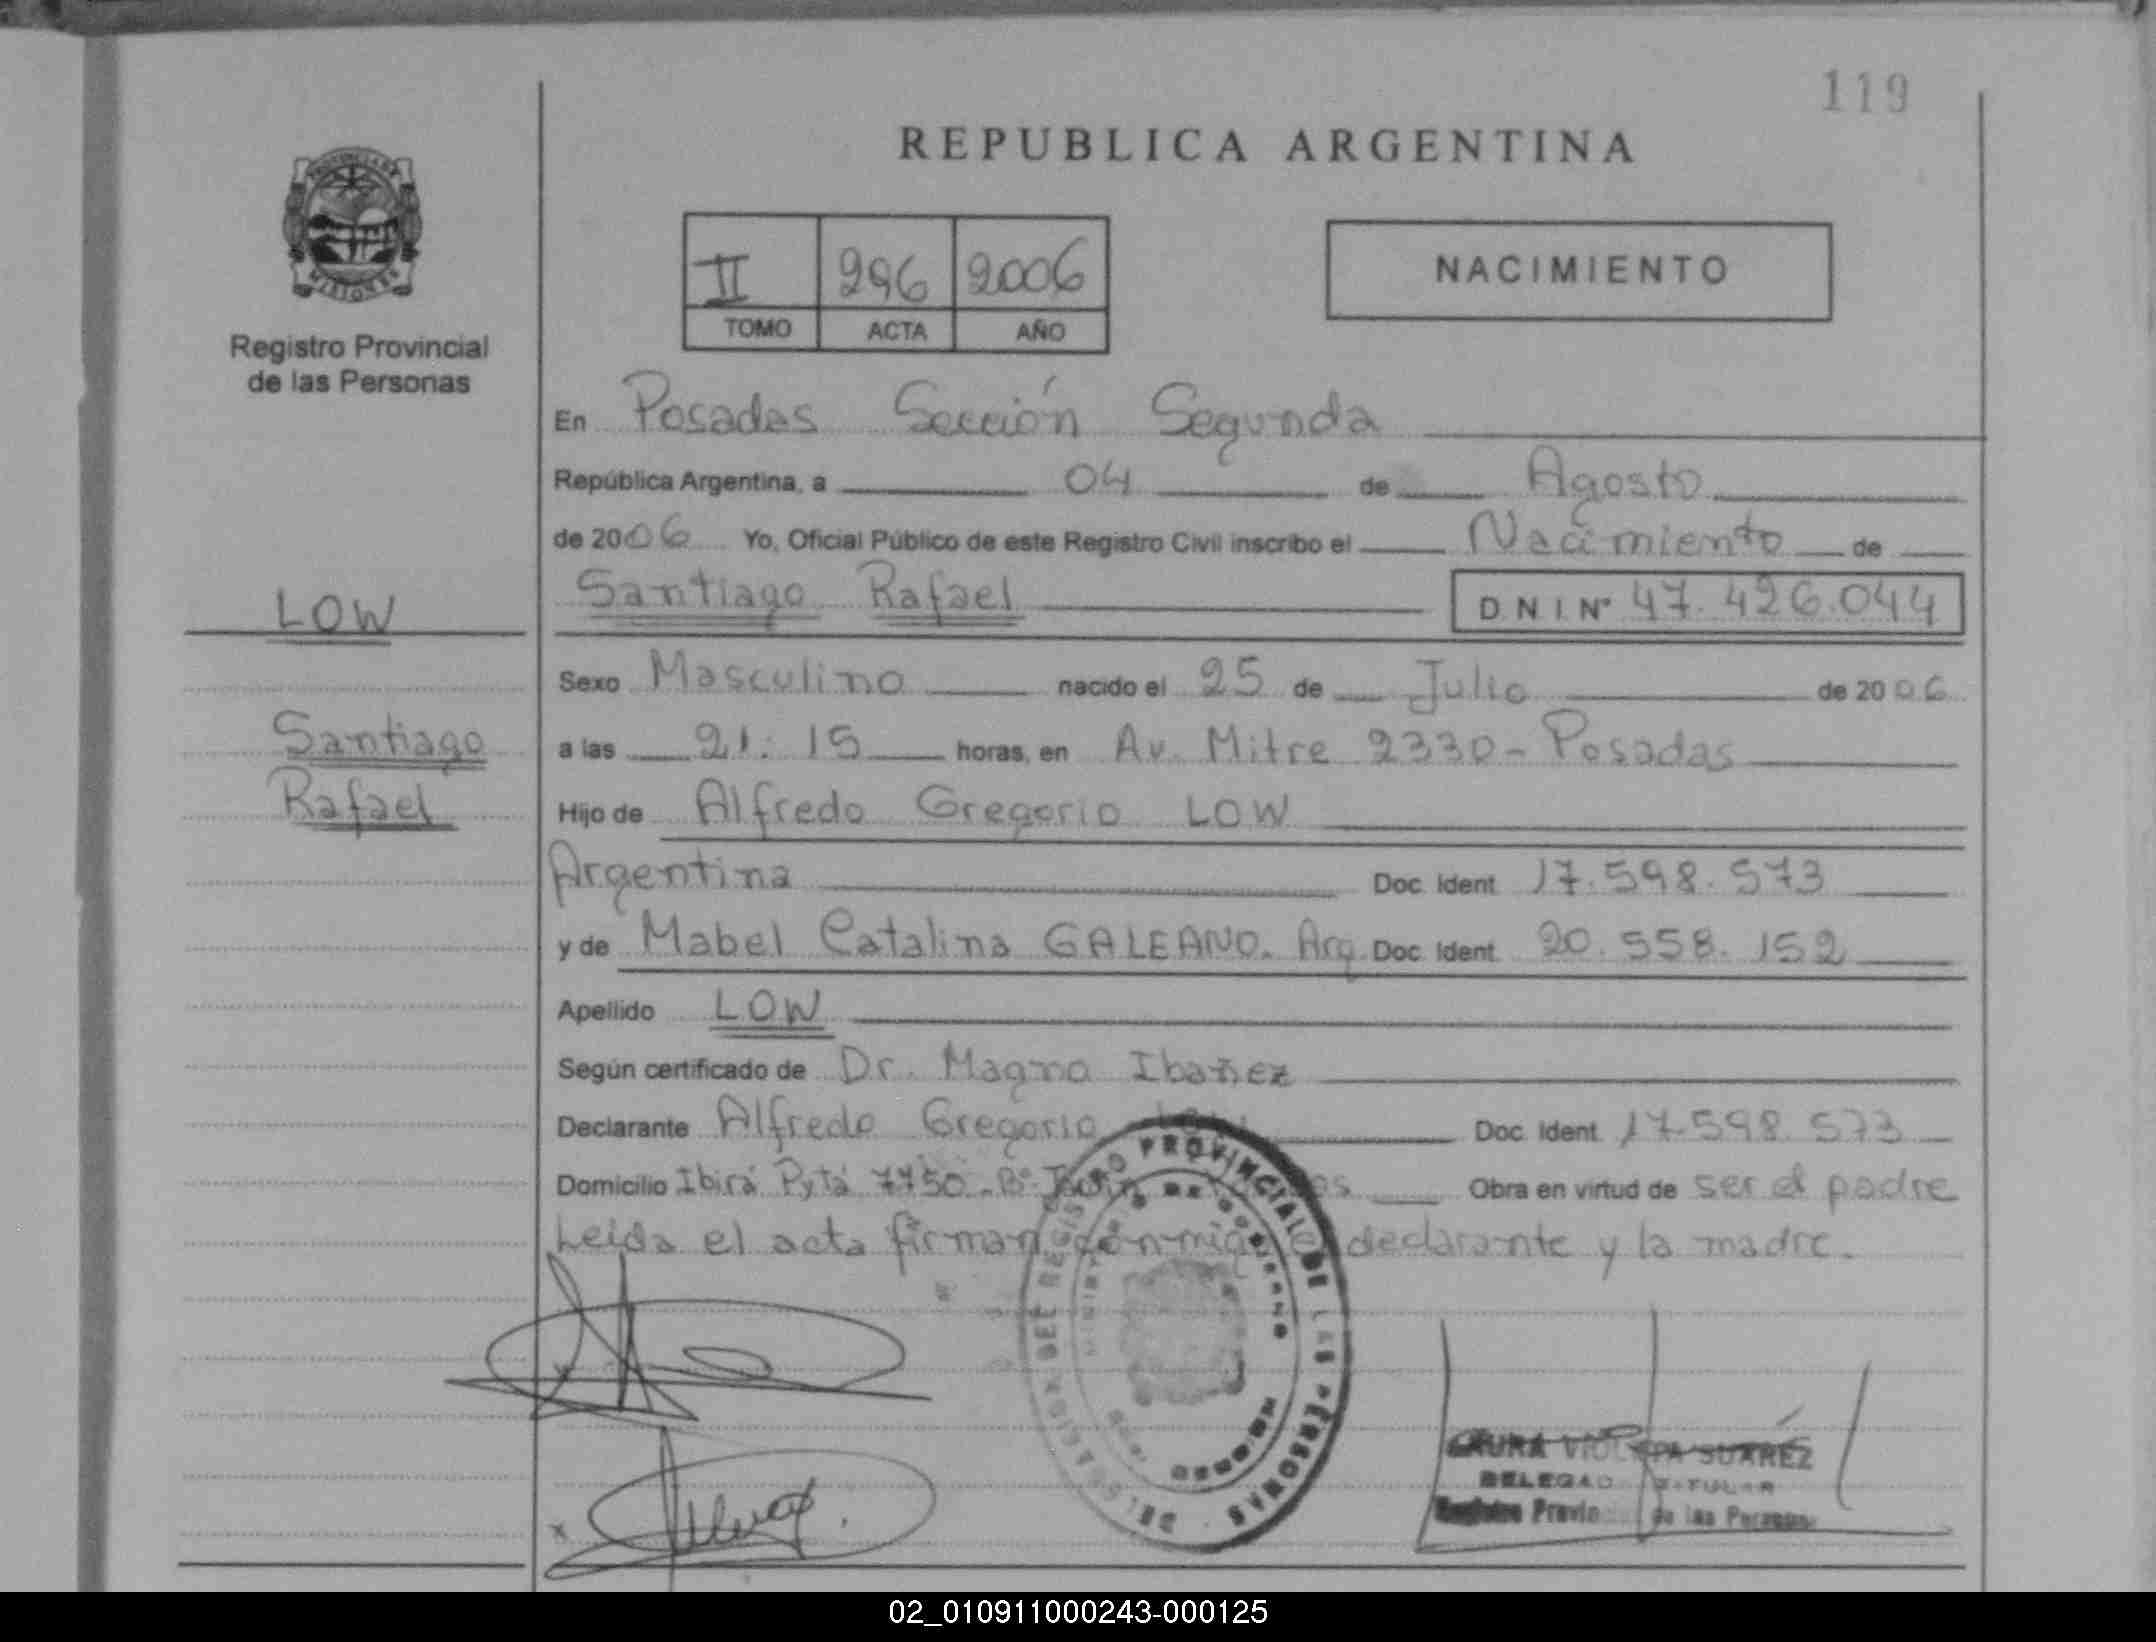 119
REPUBLICA ARGENTINA
PROVINCIA DE
MISIONES
Registro Provincial
de las Personas
II 296 2006
TOMO ACTA AÑO
NACIMIENTO
En Posadas Sección Segunda
República Argentina, a 04 de Agosto
de 2006 Yo, Oficial Público de este Registro Civil inscribo el Nacimiento de
Santiago Rafael D.N.I. Nº 47.426.044
LOW
Santiago
Rafael
Sexo Masculino nacido el 25 de Julio de 2006
a las 21:15 horas, en Av. Mitre 2330 - Posadas
Hijo de Alfredo Gregorio LOW
Argentina Doc. Ident. 17.598.573
y de Mabel Catalina GALEANO. Arg. Doc. Ident. 20.558.152
Apellido LOW
Según certificado de Dr. Magno Ibañez
Declarante Alfredo Gregorio Low Doc. Ident. 17.598.573
Domicilio Ibirá Pytá 7750 - Bº Obra en virtud de ser el padre
Leída el acta firman conmigo el declarante y la madre.
DELEGACION DEL REGISTRO PROVINCIAL DE LAS PERSONAS
MINISTERIO DE GOBIERNO
x
x
LAURA VIOLETA SUAREZ
DELEGADO TITULAR
Registro Provincial de las Personas
02_010911000243-000125